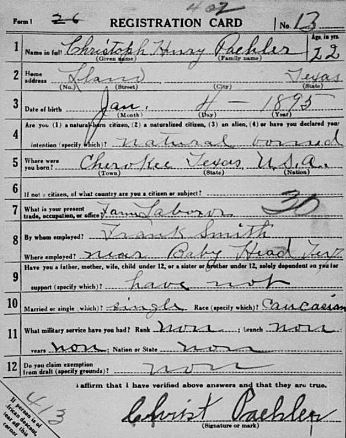 Form 1 26 402 No. 13
REGISTRATION CARD
1 Name in full Christoph Henry Paehler Age, in yrs. 22
(Given name) (Family name)
2 Home address Llano Texas
(No.) (Street) (City) (State)
3 Date of birth Jan. 4 - 1895
(Month) (Day) (Year)
Are you (1) a natural-born citizen, (2) a naturalized citizen, (3) an alien, (4) or have you declared your
4 intention (specify which)? natural borned
5 Where were you born? Cherokee Texas U.S.A.
(Town) (State) (Nation)
6 If not a citizen, of what country are you a citizen or subject?
7 What is your present trade, occupation, or office? Farm Laboror 30
8 By whom employed? Frank Smith
Where employed? near Baby Head Tex
9 Have you a father, mother, wife, child under 12, or a sister or brother under 12, solely dependent on you for
support (specify which)? have not
10 Married or single (which)? single Race (specify which)? Caucasian
11 What military service have you had? Rank non ; branch non
years non ; Nation or State non
12 Do you claim exemption from draft (specify grounds)? non
I affirm that I have verified above answers and that they are true.
Christ Paehler
(Signature or mark)
413
If person is of African descent, tear off this corner